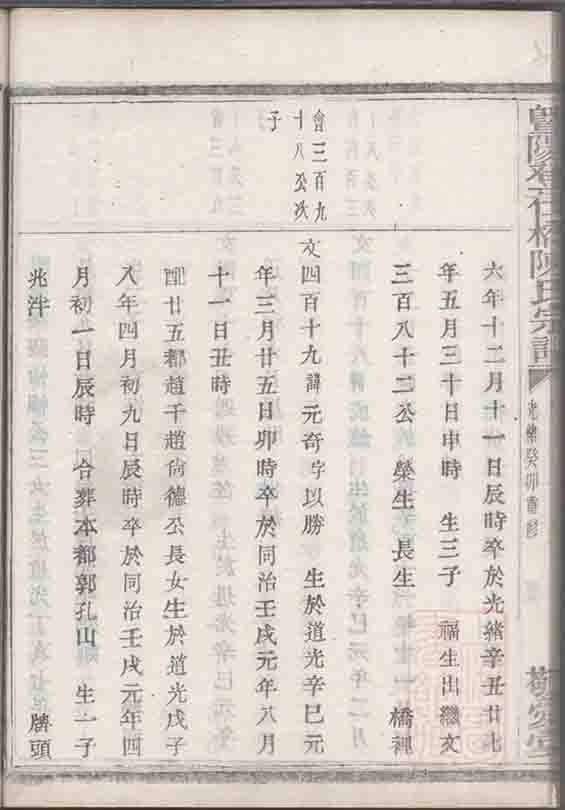 暨陽橋陳氏宗譜
光緒癸卯重修
六年十二月十一日辰時卒於光緒辛丑廿七
年五月三十日申時 生三子 福生出繼文
三百八十二公 榮生 長生 橋裡
會三百九
十八公次
子
文四百十九諱元奇字以勝 生於道光辛巳元
年三月廿五日卯時卒於同治壬戌元年八月
十一日丑時
配廿五都趙千趙尙德公長女生於道光戊子
八年四月初九日辰時卒於同治壬戌元年四
月初一日辰時 合葬本都郭孔山 生一子
兆泮 臍頭